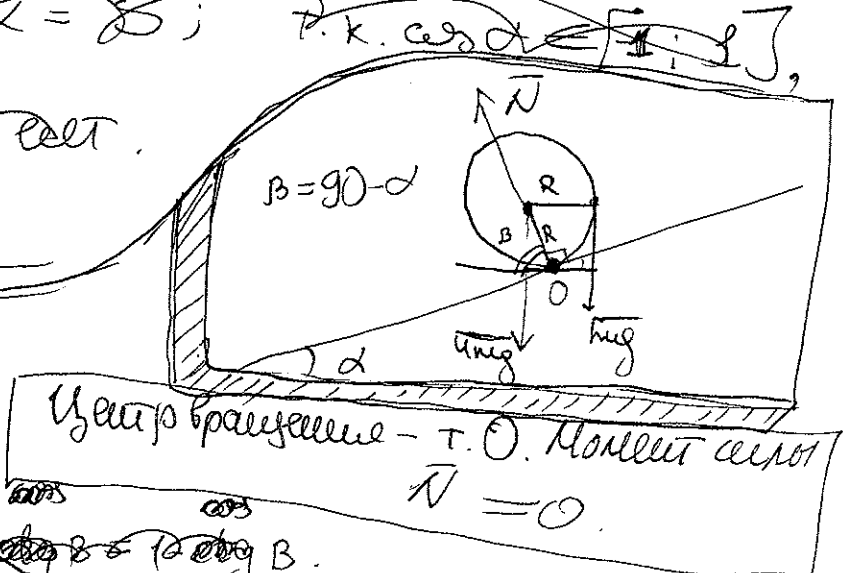 т.к. cos α ∈ [-1; 1],
ест.
N
β = 90 - α
R
B R
O
4mg
mg
α
Центр вращения - т. О. Момент силы
N = 0.